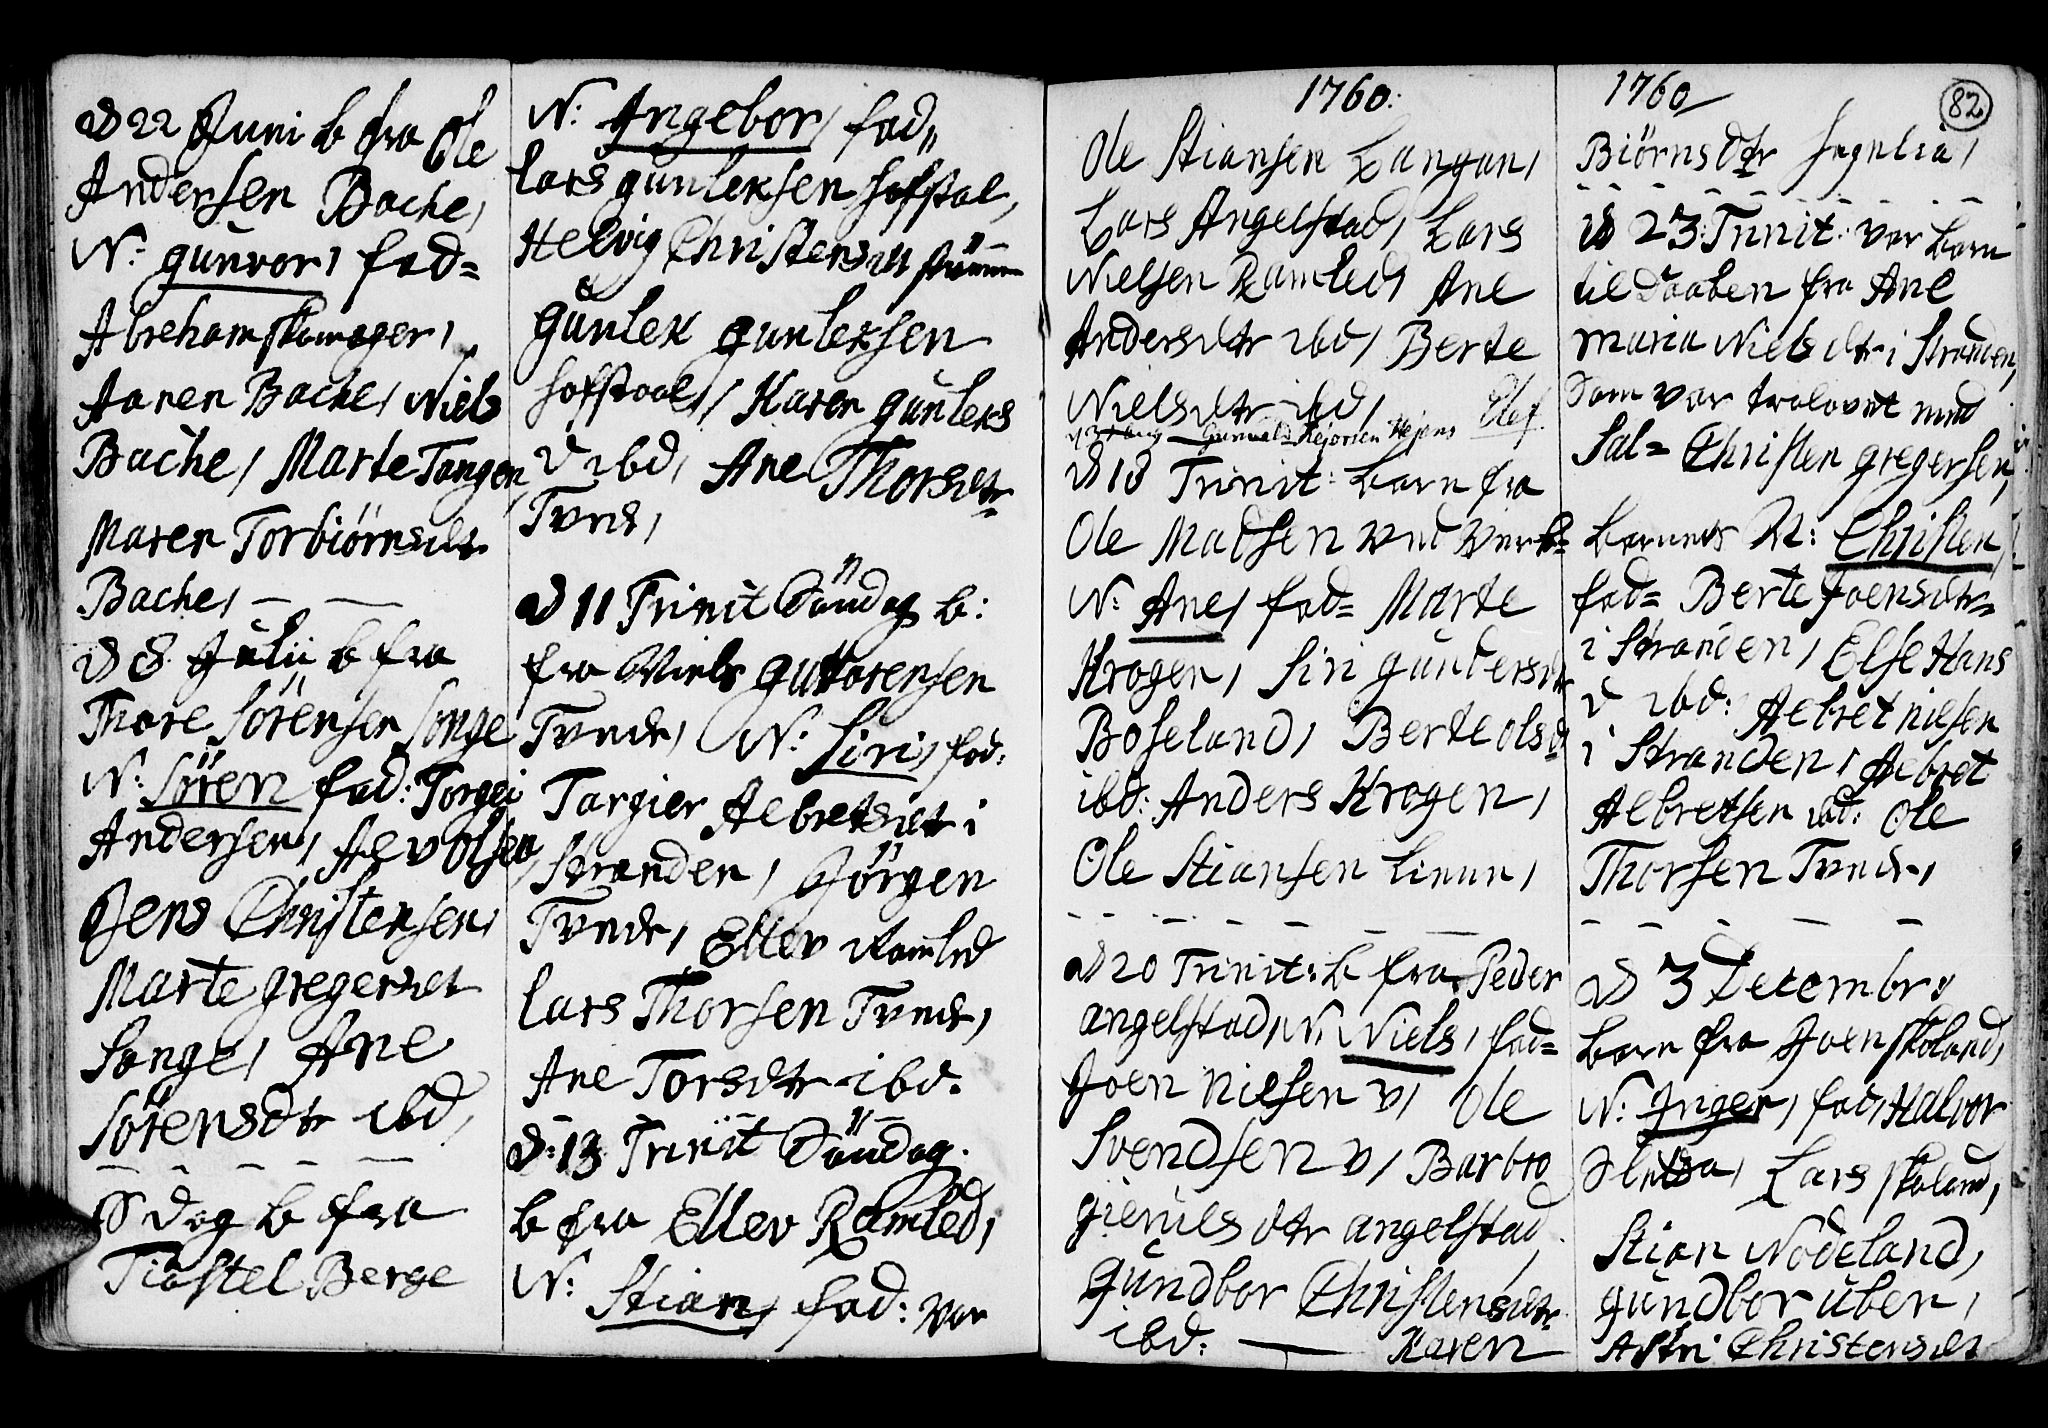 D 22 Juni b fra Ole
Andersen Bache,
N: gunvor, fad=
Abreham skomager,
Aanen Bache, Niels
Bache, Marte Tangen,
Maren Torbiörnsdtr
Bache, — —
D 8 Julii b fra
Thore Sörensen Songe
N: Sören fad: Torgei
Andersen, Aev Olsen,
Jens Christensen,
Marte gregersdt
Songe, Ane
Sörensdtr ibd,
— — — — —
D dag b fra
Kiöstel Berge
N: Ingebor, fad,,
Lars gunleksen hofstal,
Helvig Christensdtr
gunlek gunleksen
hofstaal, Karen gunleks
D ibd, Ane Thorsdtr
Tvede,
D 11 Trinit Söndag b:
fra Niels guttorensen
Tvede, N: Siri, fad:
Targier Aebretsdtr i
Stranden, Jörgen
Tvede, Ellev Ramled
Lars Thorsen Tvede,
Ane Torsdtr ibd.
D: 13 Trinit Söndag.
b fra Ellev Ramled,
N: Stian, fad: var
1760:
Ole Stiansen Langan,
Lars Angelstad, Lars
Nielsen Ramled, Ane
Andersdtr ibd, Berte
Nielsdtr ibd,
Olef.
D 18 Trinit: barn fra
Ole Madsen ved Verk=
N: Ane, fad= Marte
Krogen, Siri gundersdtr
Boseland, Berte olsd
ibd: Anders Krogen,
Ole Stiansen Limm,
— — — — — — —
D 20 Trinit: b fra Peder
angelstad, N. Niels, fad=
Joen Nielsen v, Ole
Svendsen v, Barbro
gieruls dtr angelstad,
gundbor Christensdtr.
ibd: — Karen
1760
82
Biörnsdtr
— — — — — — —
D 23: Trinit: var barn
til daaben fra Ane
Maria Nielsdtr i Stranden,
som var trolovet med
Sal= Christen gregersen,
barnets N: Christen,
fad= Berte Joensdtr
i Stranden, Else Hans
D ibd: Aebret nielsen
i Stranden, Aebret
Aebretsen ibd: Ole
Thorsen Tvede,
— — — — —
D 3 Decembr:
barn fra Joen skoland,
N: Inger, fad, Halvor
Sletta, Lars skoland,
Stian Nodeland,
gundbor uben,
Astri Christensdt